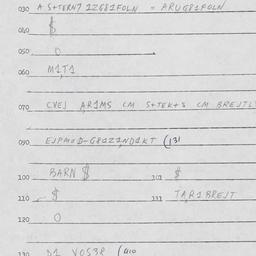 030 A S+TERN7 1ZG81FOLN = ARUG81FOLN
040 $
050 0
060 M1T1
070 CVEJ AR1MS CM S+TEK+S CM BREJTL
090 EJPMOD-G81Z1ND1KT (131
100 BARN $ 101 $
110 $ 111 TAR1 BREJT
120 0
130 D1 VOS38 (410